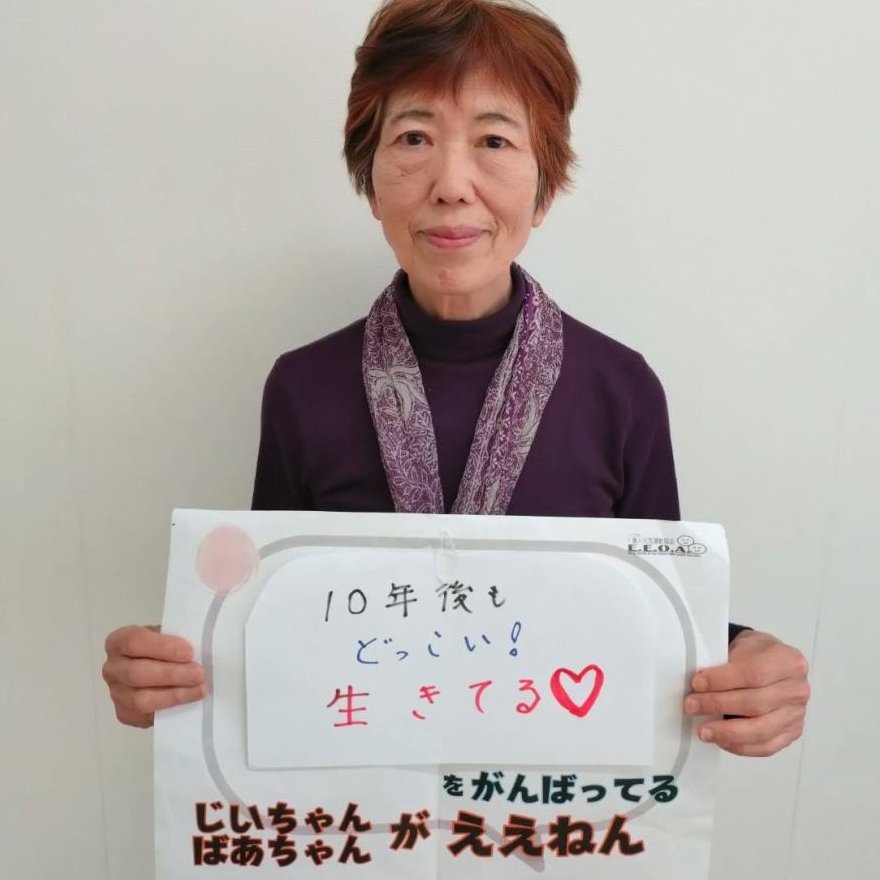 E.E.O.A
10年後も
どっこい!
生きてる♡
をがんばってる
じいちゃん
ばあちゃん
が ええねん